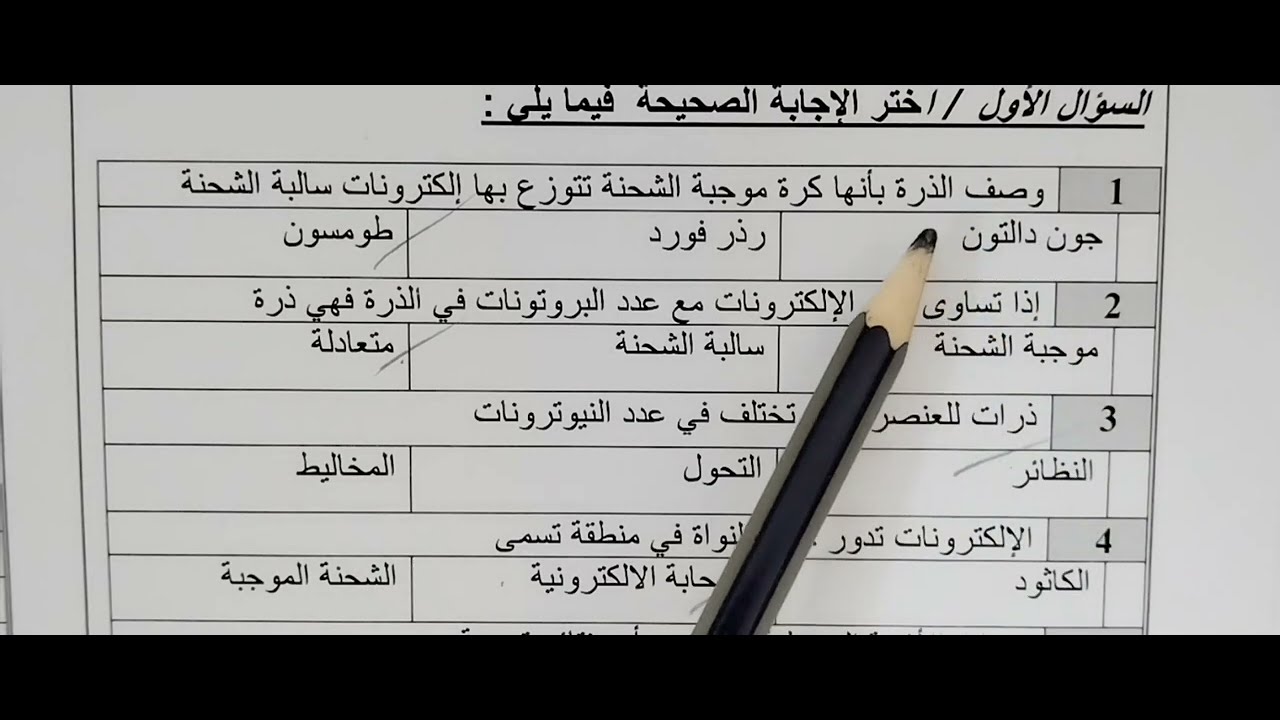 السؤال الأول / اختر الإجابة الصحيحة فيما يلي :
1 وصف الذرة بأنها كرة موجبة الشحنة تتوزع بها إلكترونات سالبة الشحنة
جون دالتون رذر فورد طومسون
2 إذا تساوى الإلكترونات مع عدد البروتونات في الذرة فهي ذرة
موجبة الشحنة سالبة الشحنة متعادلة
3 ذرات للعنصر تختلف في عدد النيوترونات
النظائر التحول المخاليط
4 الإلكترونات تدور النواة في منطقة تسمى
الكاثود حابة الالكترونية الشحنة الموجبة